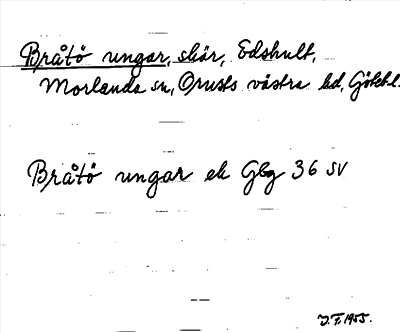 Bråtö ungar, skär, Edshult,
Morlanda sn, Orusts västra hd, Göteb.l.
Bråtö ungar ek Gbg 36 SV
J.F. 1955.